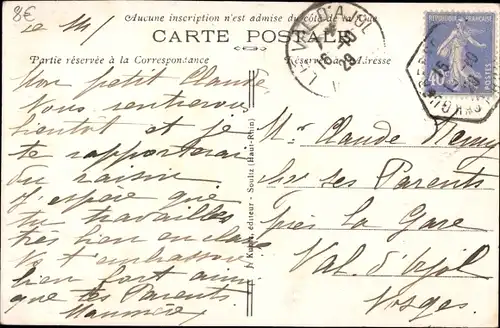 8€
Aucune inscription n'est admise du côté de la Vue
CARTE POSTALE
Partie réservée à la Correspondance
Réservée à l'Adresse
40
Mon petit Claude,
Nous rentrerons
bientôt et je
te rapporterai
du raisin
J'espère que
tu travailles
très bien en classe
t'embrassons
bien fort ainsi
que tes Parents
Mr Claude Remy
chez ses Parents
près la Gare
Val d'Ajol
Vosges
éditeur - Soultz (Haut-Rhin)